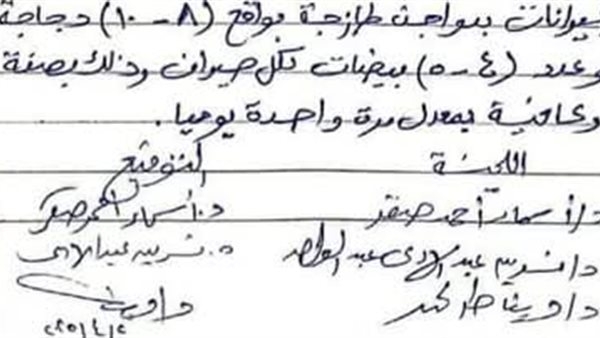 حيوانات بدواجن طازجة بواقع (٨ - ١٠) دجاجة
وعدد (٤ - ٥) بيضات لكل حيوان وذلك بصفة
وكافية بمعدل مرة واحدة يوميا .
اللجنة التوقيع
د/ أسماء أحمد صقر د. أسماء أحمد صقر
د/ نسرين عبد الهادى عبد الواحد
د/ دينا